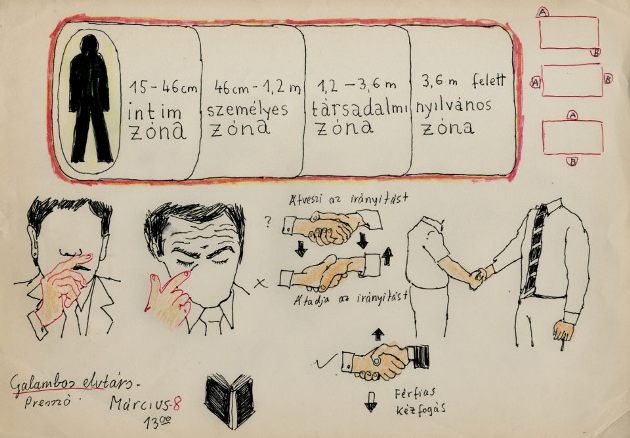 15-46cm
intim
zóna
46cm-1,2 m
személyes
zóna
1,2 – 3,6 m
társadalmi
zóna
3,6 m felett
nyilvános
zóna
A
B
A
B
A
B
Átveszi az irányítást
?
x
Átadja az irányítást
✓
Férfias
kézfogás
Galambos elvtárs.
Presszó
Március-8
13 00